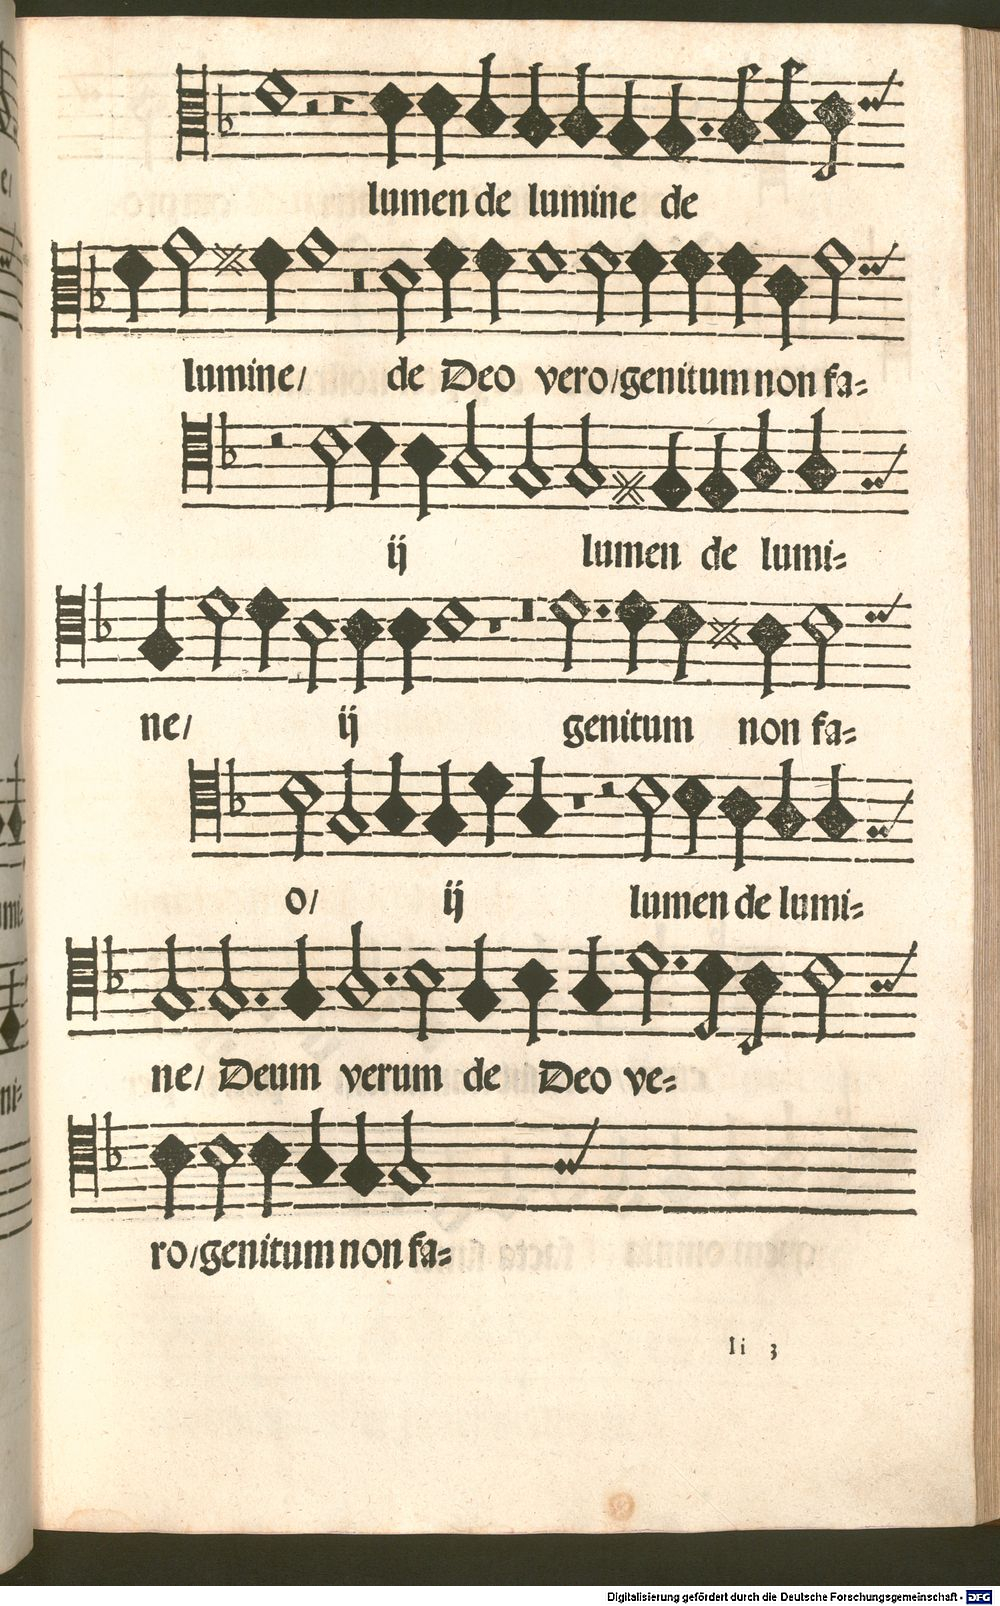 lumen de lumine de
lumine/ de Deo vero/genitum non fa=
ij lumen de lumi=
ne/ ij genitum non fa=
o/ ij lumen de lumi=
ne/ Deum verum de Deo ve=
ro/genitum non fa=
Ii 3
Digitalisierung gefördert durch die Deutsche Forschungsgemeinschaft - DFG